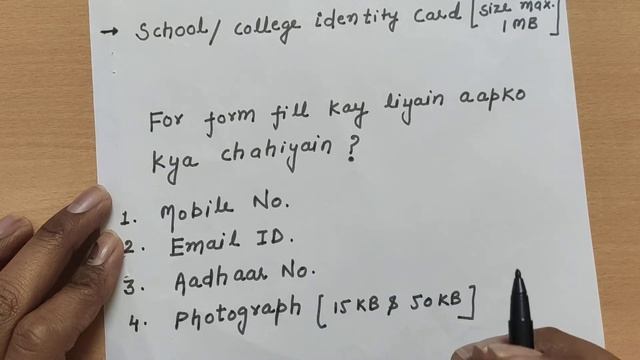 → School/ college identity card [size max.
1 MB]
For form fill kay liyain aapko
kya chahiyain ?
1. Mobile No.
2. Email ID.
3. Aadhaar No.
4. Photograph [15 KB & 50 KB]